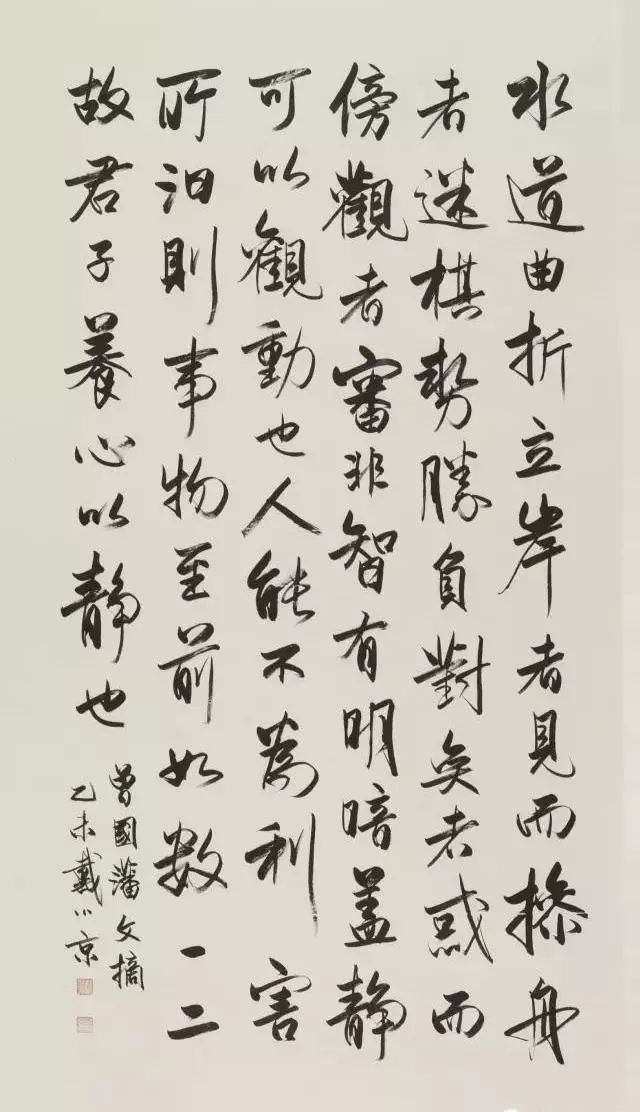 水道曲折立岸者見而操舟
者迷棋勢勝負對奕者惑而
傍觀者審非智有明暗盖静
可以觀動也人能不為利害
所汩則事物至前如数一二
故君子養心以静也
曾國藩文摘
乙未戴小京